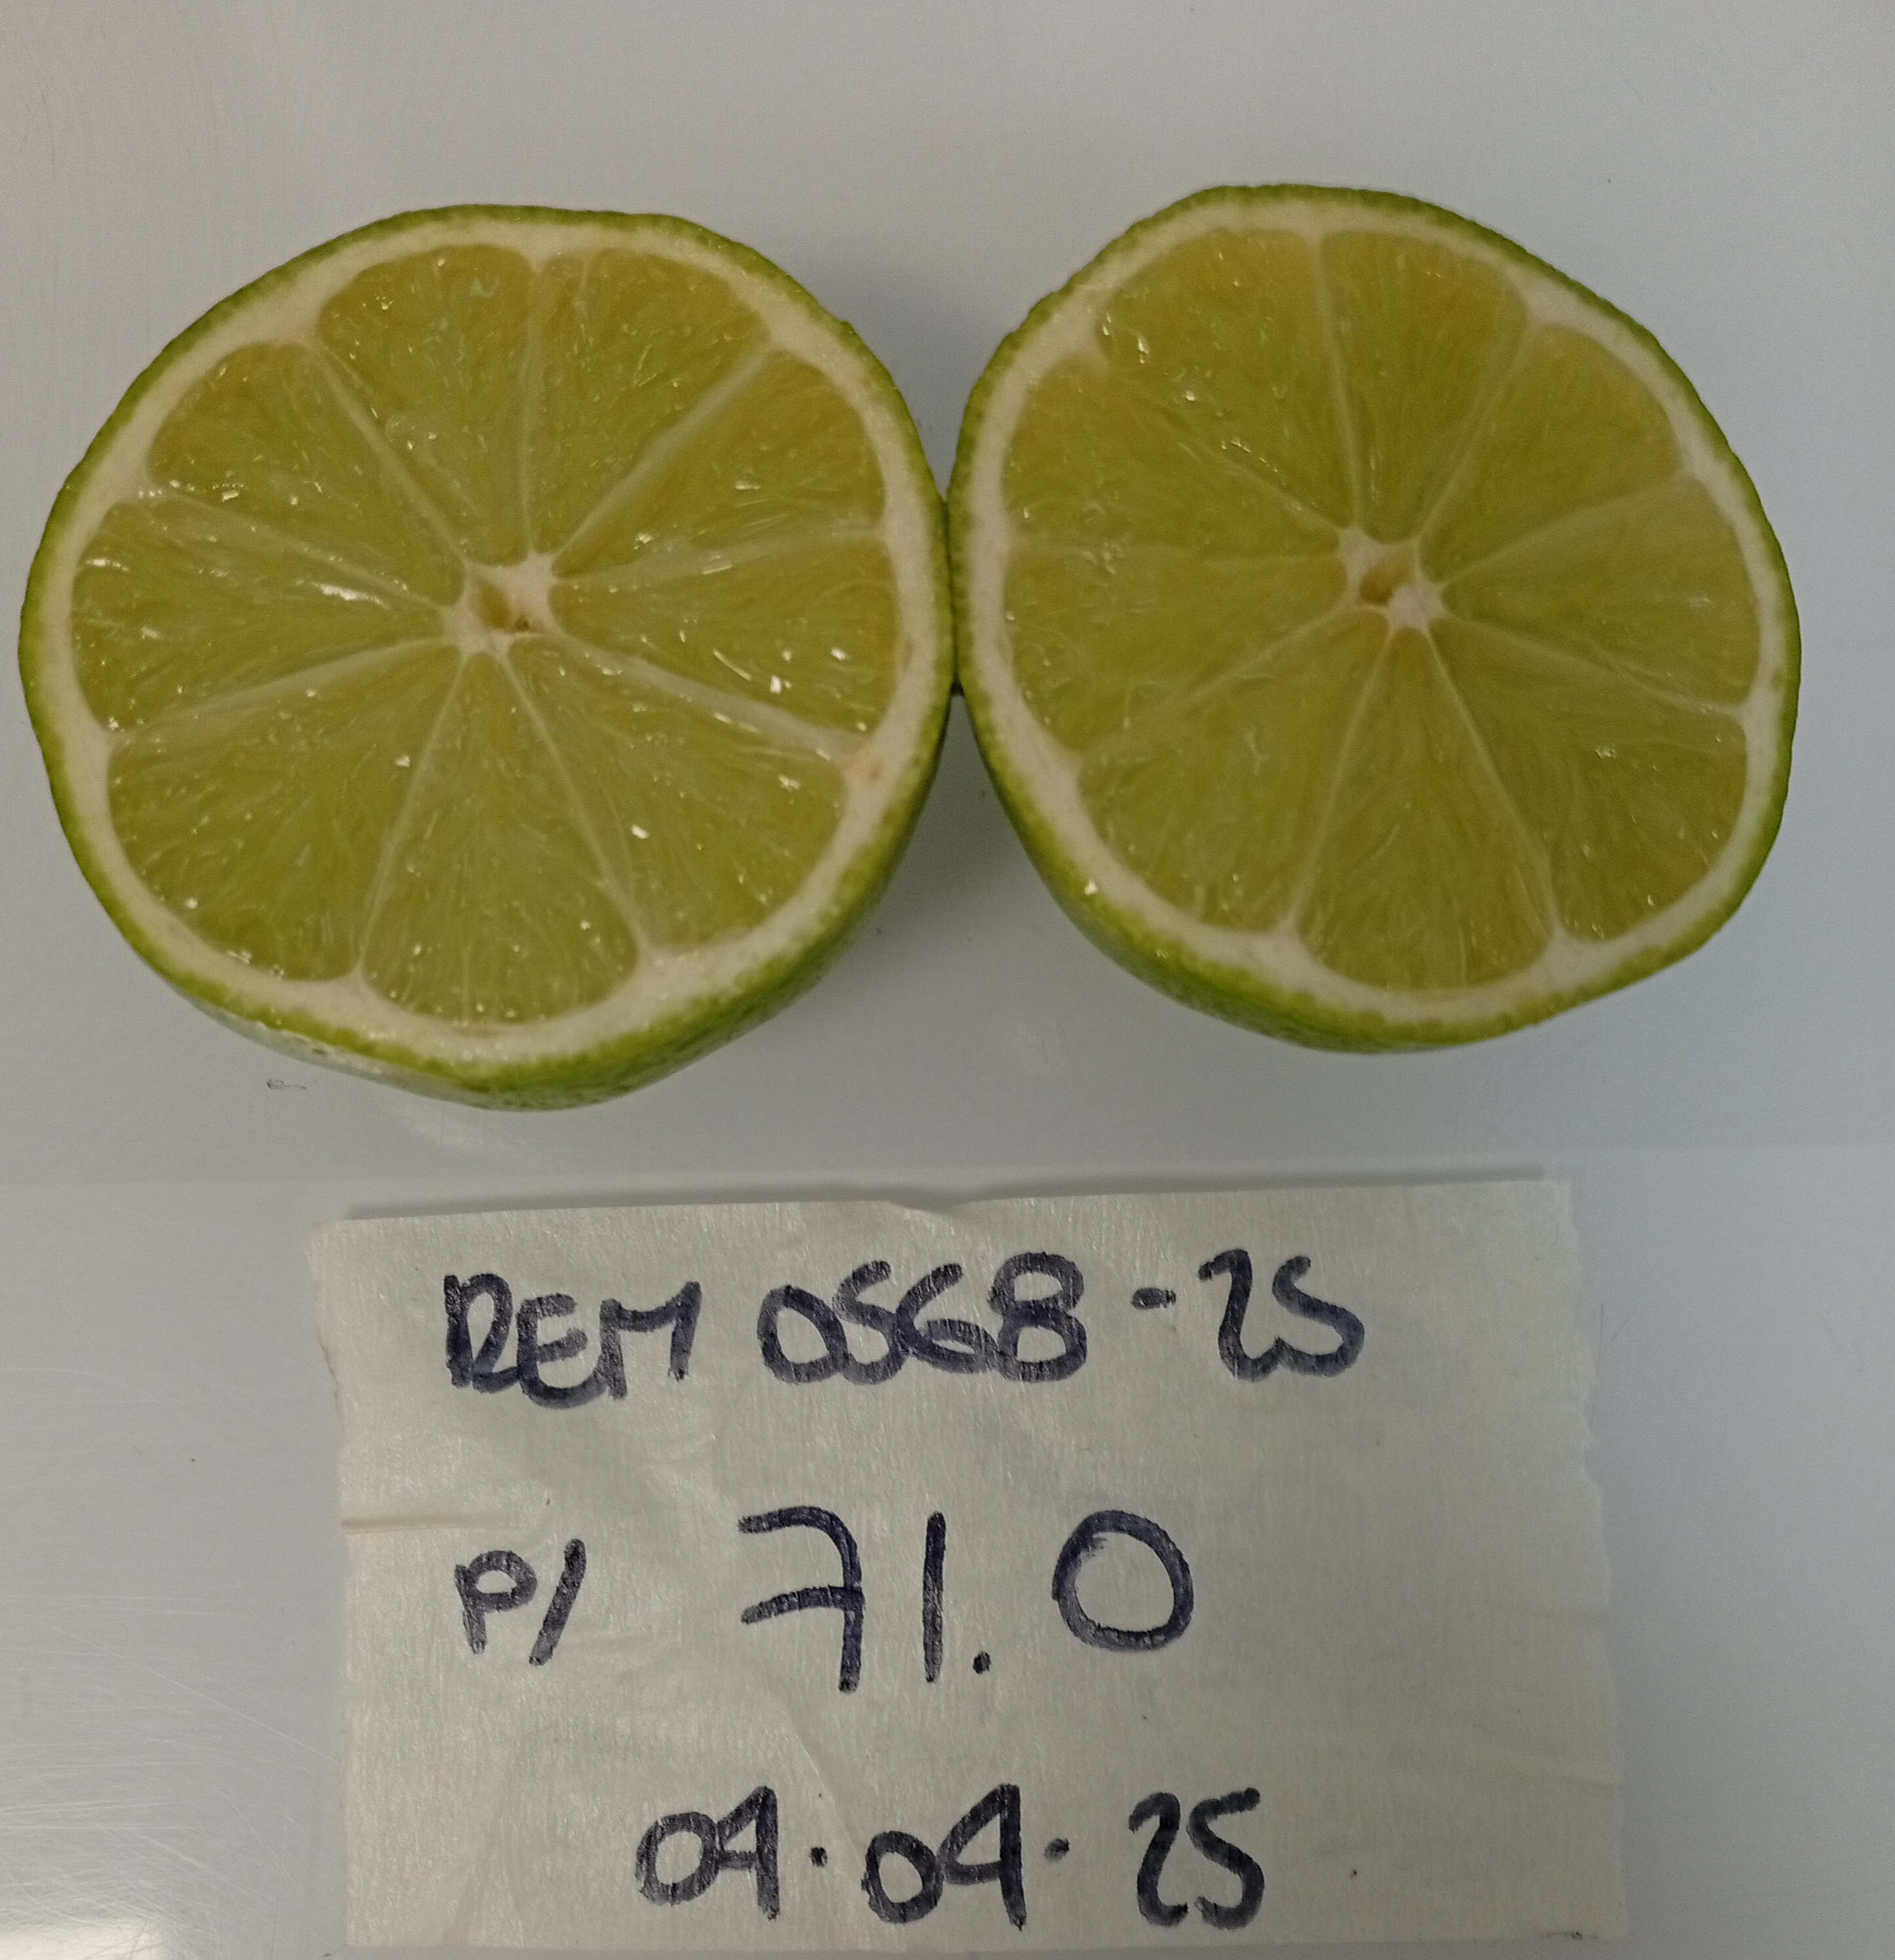 REM 0568-25
P/ 71.0
04.04.25